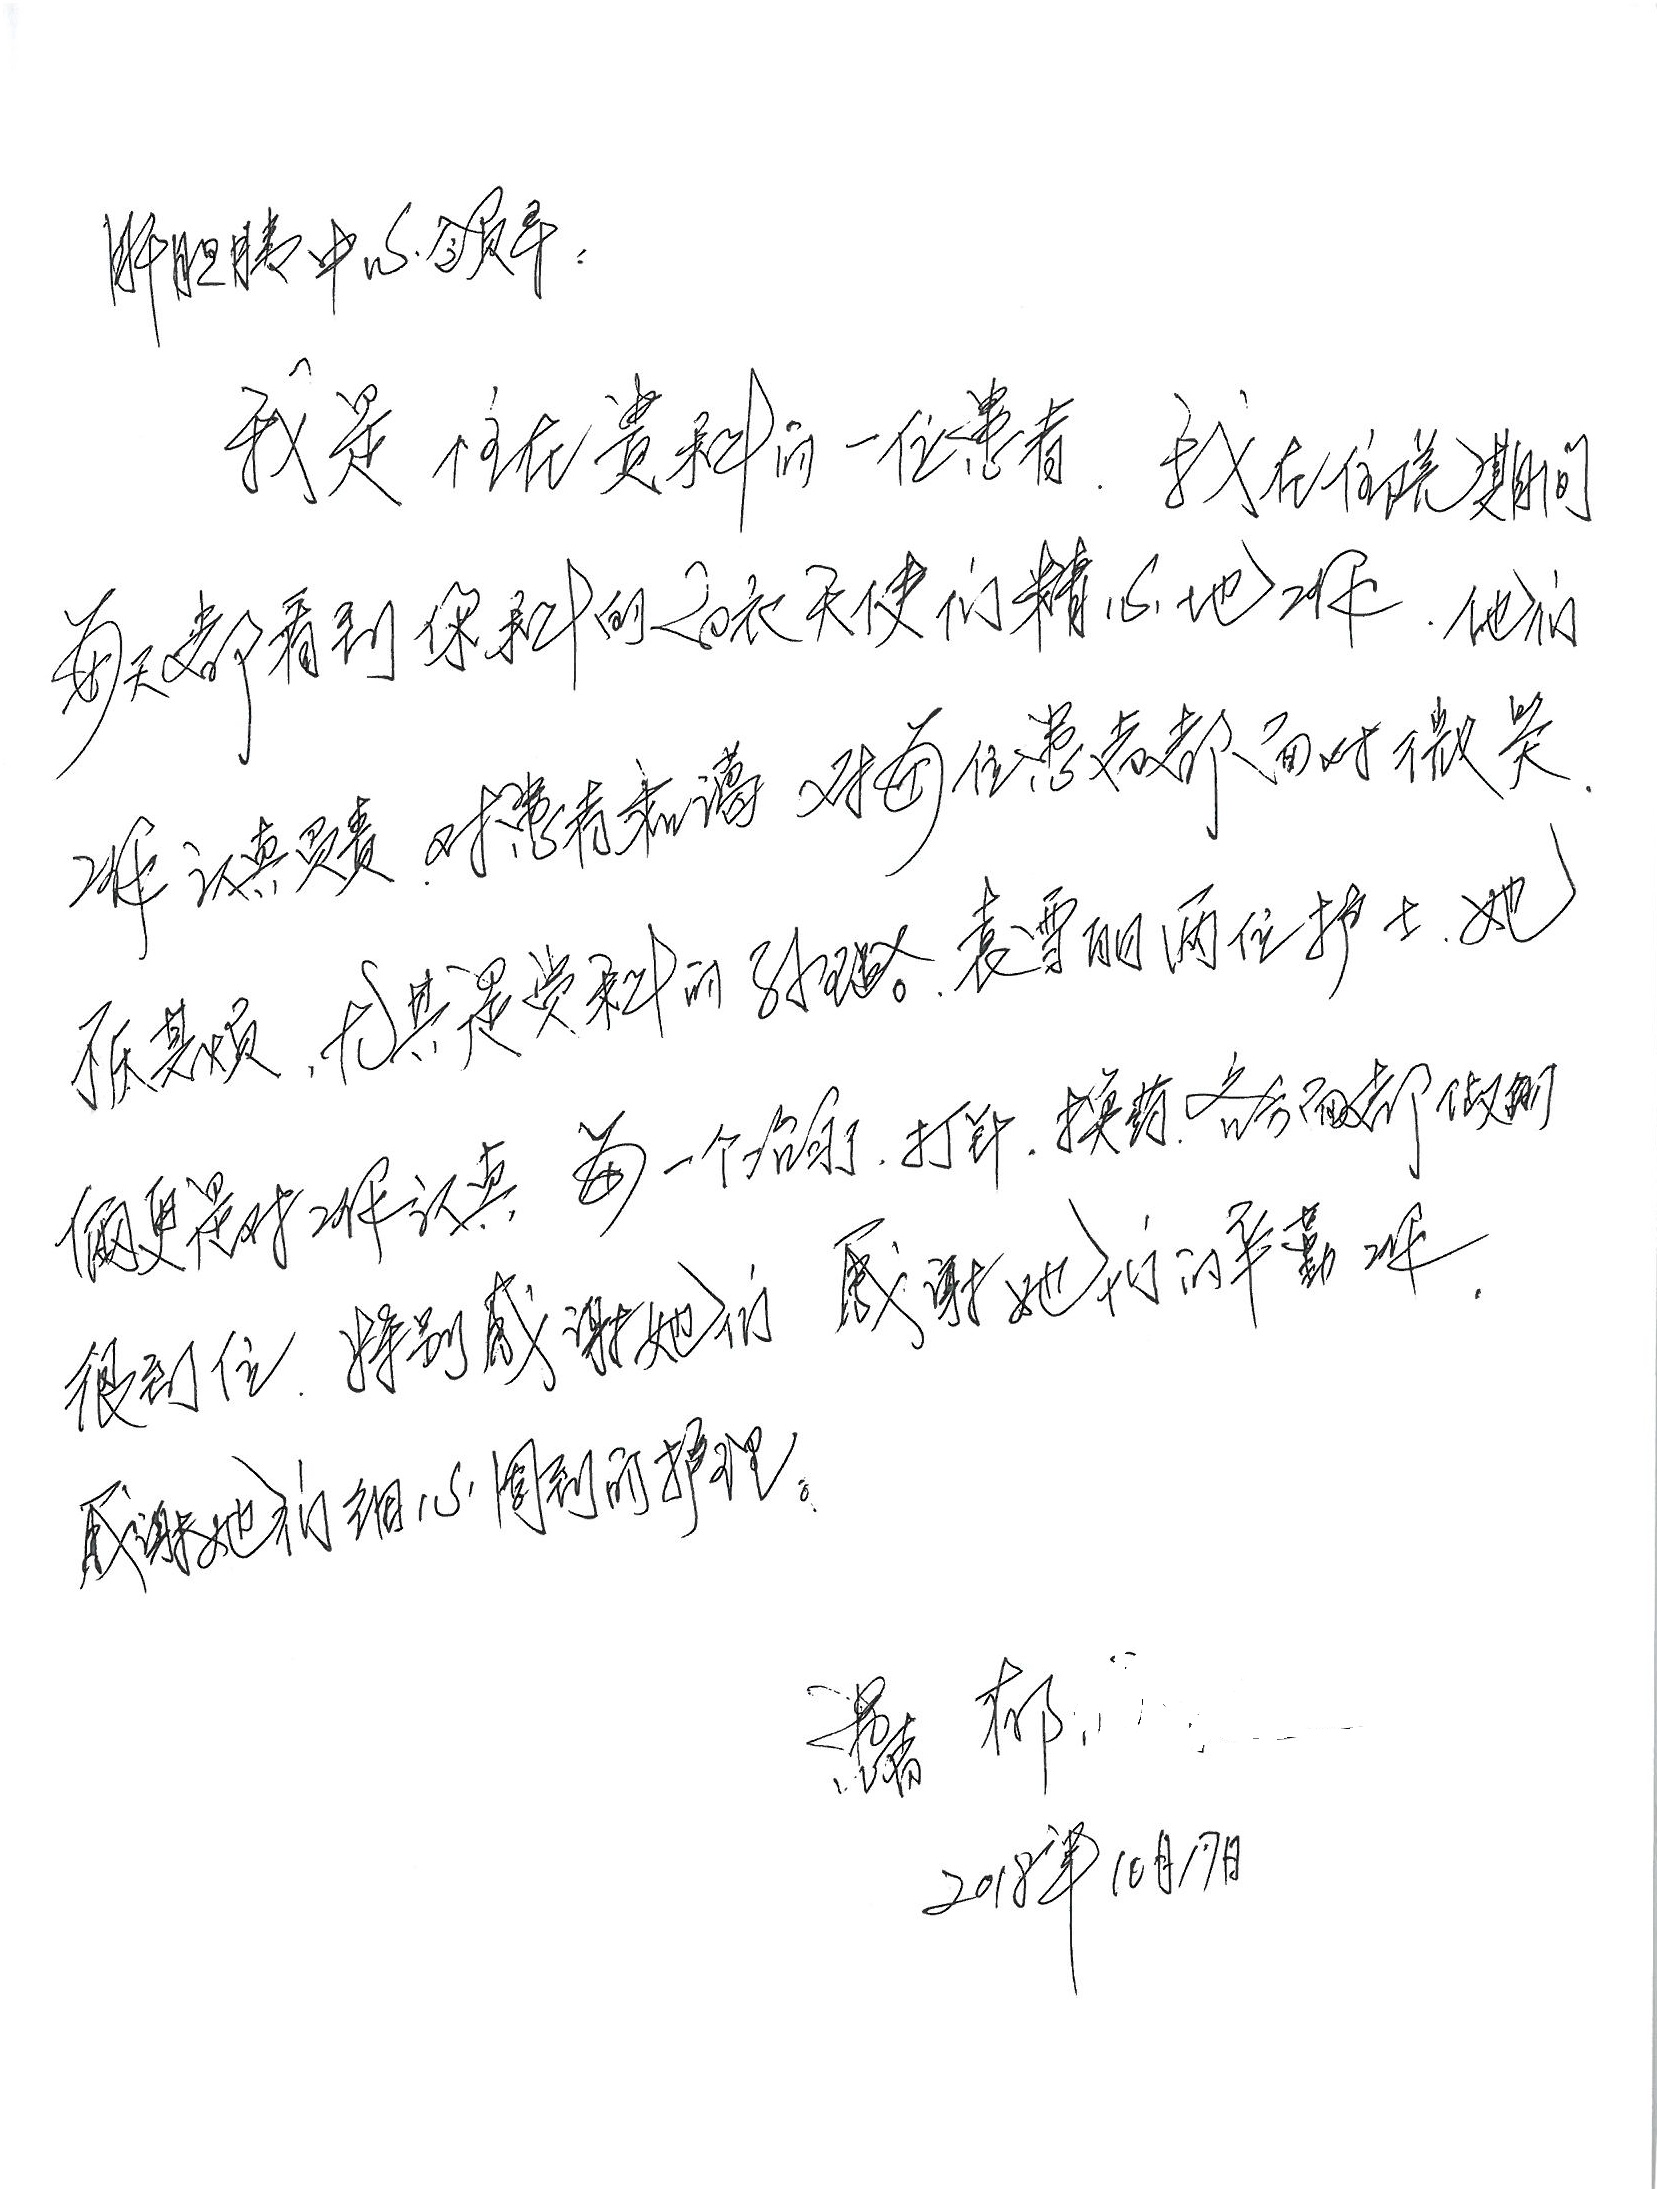 肝胆胰中心领导:
我是 住在贵科的一位患者. 我在住院期间
每天都看到保科的白衣天使们精心地工作. 他们
工作认真负责.对患者和蔼 对每位患者都面对微笑.
不厌其烦.尤其是贵科的孙璐.袁雪丽两位护士.她
俩更是对工作认真 每一个治疗.打针.换药.各方面都做到
很到位.特别感谢她们 感谢她们的辛勤工作.
感谢她们细心周到的护理。
患者 郁
2018年10月17日